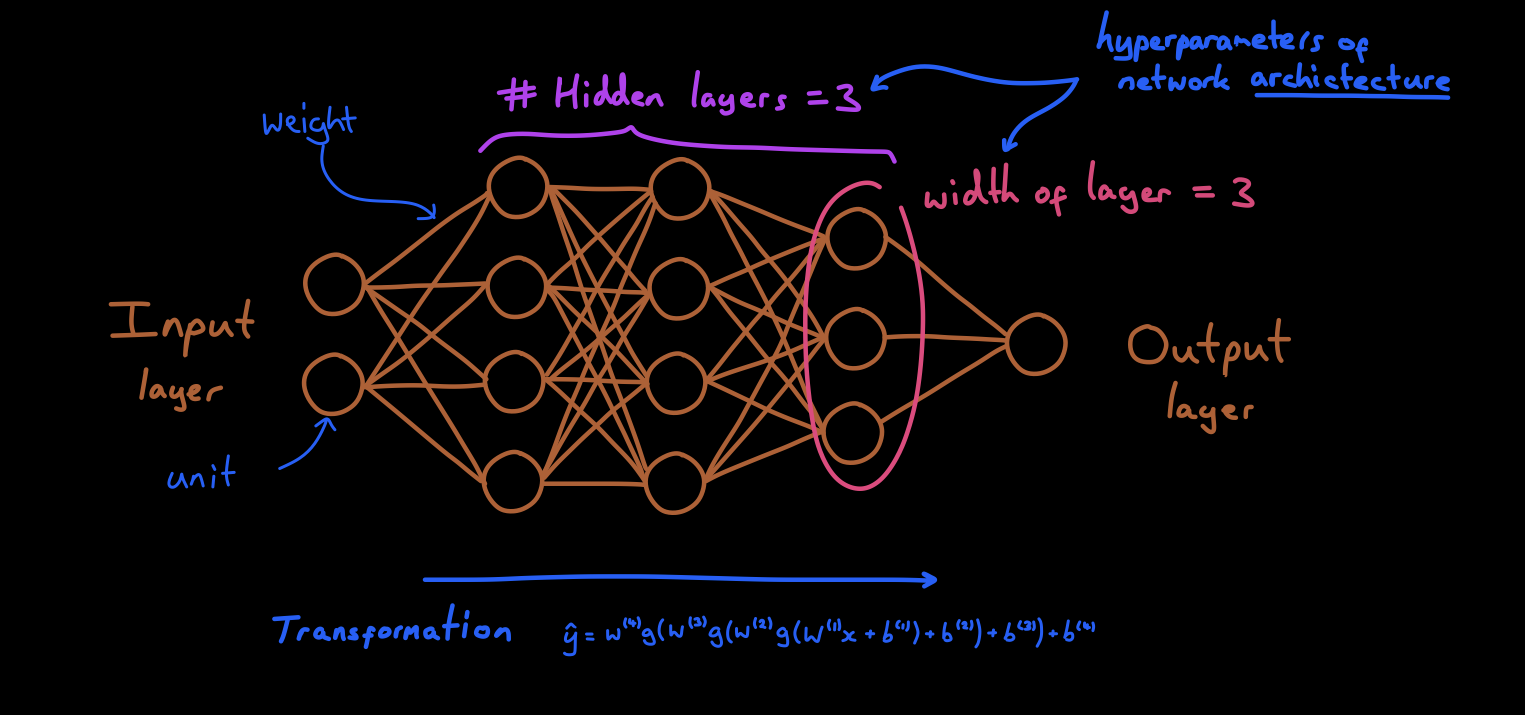 hyperparameters of
network archictecture
# Hidden layers = 3
weight
width of layer = 3
Input
layer
Output
layer
unit
Transformation ŷ = w⁽⁴⁾g(w⁽³⁾g(w⁽²⁾g(w⁽¹⁾x + b⁽¹⁾) + b⁽²⁾) + b⁽³⁾) + b⁽⁴⁾